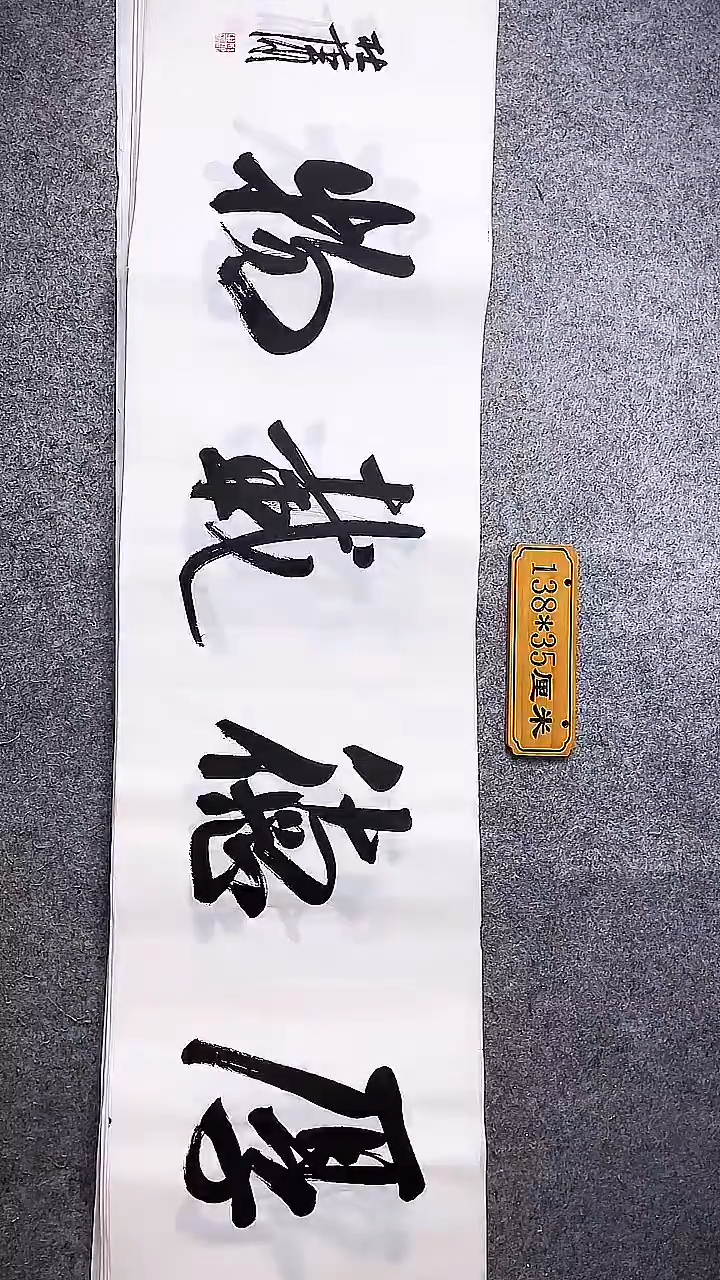 厚德載物
138*35厘米